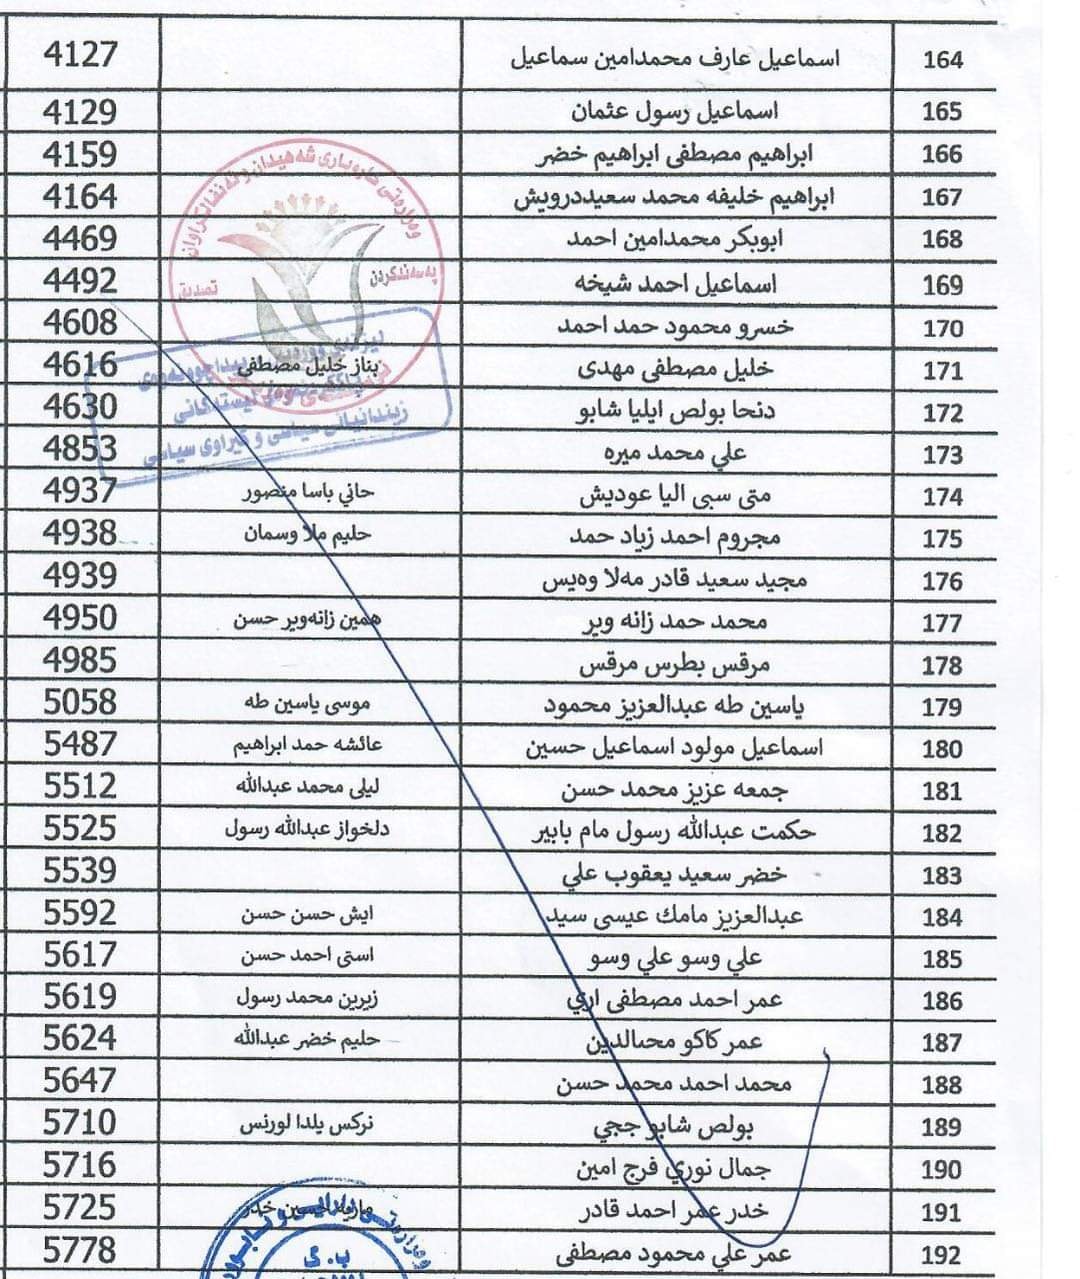 164 اسماعيل عارف محمدامين سماعيل 4127
165 اسماعيل رسول عثمان 4129
166 ابراهيم مصطفى ابراهيم خضر 4159
167 ابراهيم خليفه محمد سعيددرويش 4164
168 ابوبكر محمدامين احمد 4469
169 اسماعيل احمد شيخه 4492
170 خسرو محمود حمد احمد 4608
171 خليل مصطفى مهدى بناز خليل مصطفى 4616
172 دنحا بولص ايليا شابو 4630
173 علي محمد ميره 4853
174 متى سبى اليا عوديش حاني باسا منصور 4937
175 مجروم احمد زياد حمد حليم ملا وسمان 4938
176 مجيد سعيد قادر مەلا وەيس 4939
177 محمد حمد زانه وير همين زانەوير حسن 4950
178 مرقس بطرس مرقس 4985
179 ياسين طه عبدالعزيز محمود موسى ياسين طه 5058
180 اسماعيل مولود اسماعيل حسين عائشه حمد ابراهيم 5487
181 جمعه عزيز محمد حسن ليلى محمد عبدالله 5512
182 حكمت عبدالله رسول مام بابير دلخواز عبدالله رسول 5525
183 خضر سعيد يعقوب علي 5539
184 عبدالعزيز مامك عيسى سيد ايش حسن حسن 5592
185 علي وسو علي وسو استى احمد حسن 5617
186 عمر احمد مصطفى اري زيرين محمد رسول 5619
187 عمر كاكو محىالدين حليم خضر عبدالله 5624
188 محمد احمد محمد حسن 5647
189 بولص شابو ججي نركس يلدا لورنس 5710
190 جمال نوري فرج امين 5716
191 خدر عمر احمد قادر حسين خدر 5725
192 عمر علي محمود مصطفى 5778
وەزارەتی کاروباری شەهیدان و ئەنفالکراوان
پەسەندکردن
تصديق
لیستەکانی
زیندانیانی سیاسی و گیراوی سیاسی
ب.گ